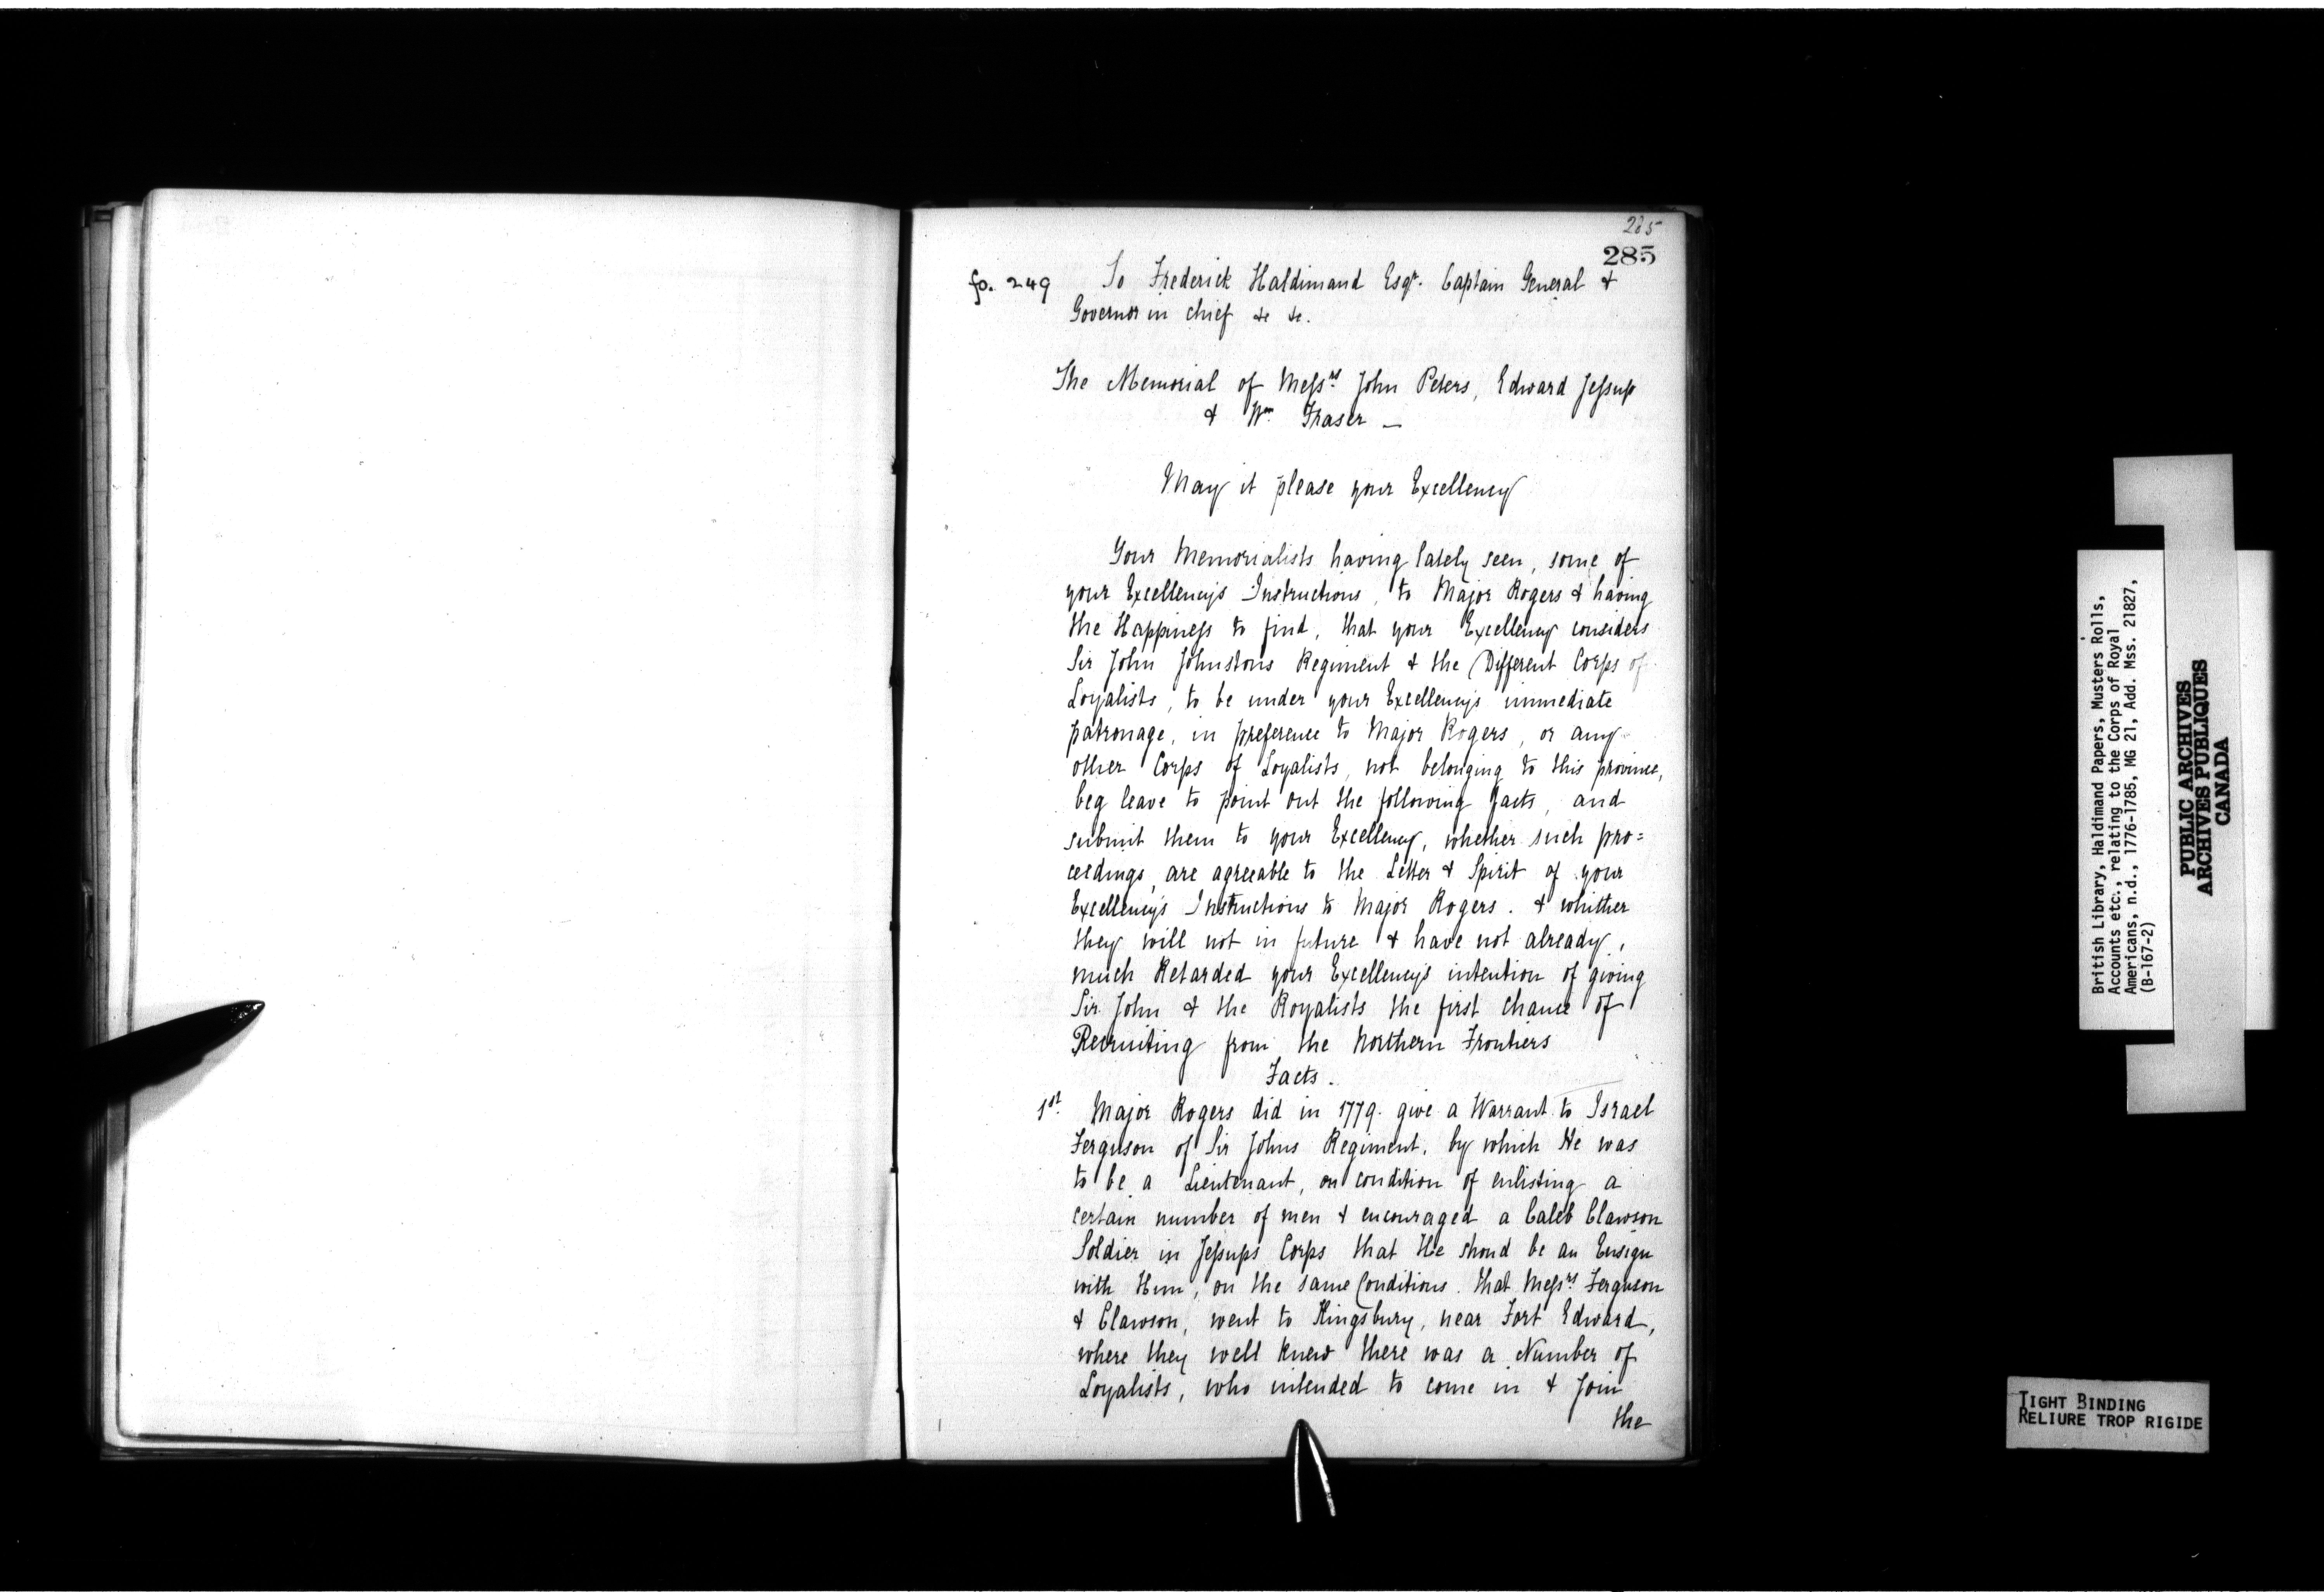 285
285
fo. 249 To Frederick Haldimand Esqr. Captain General &
Governor in chief &c &c.
The Memorial of Messrs John Peters, Edward Jessup
& Wm Fraser —
May it please your Excellency
Your Memorialists having lately seen, some of
your Excellencys Instructions, to Major Rogers & having
the Happiness to find, that your Excellency considers
Sir John Johnstons Regiment & the Different Corps of
Loyalists, to be under your Excellencys immediate
patronage, in preference to Major Rogers, or any
other Corps of Loyalists, not belonging to this province,
beg leave to point out the following facts, and
submit them to your Excellency, whether such pro=
ceedings, are agreeable to the Letter & Spirit of your
Excellency's Instructions to Major Rogers. & whither
they will not in future & have not already,
much Retarded your Excellencys intention of giving
Sir John & the Royalists the first chance of
Recruiting from the Northern Frontiers
Facts.
1st. Major Rogers did in 1779. give a Warrant to Israel
Ferguson of Sir Johns Regiment, by which He was
to be a Lieutenant, on condition of enlisting a
certain number of men & encouraged a Caleb Clawson
Soldier in Jessups Corps that He shoud be an Ensign
with Him, on the same Conditions. that Messrs Ferguson
& Clawson, went to Kingsbury, near Fort Edward,
where they well knew there was a Number of
Loyalists, who intended to come in & join
the
British Library, Haldimand Papers, Musters Rolls,
Accounts etc., relating to the Corps of Royal
Americans, n.d., 1776-1785, MG 21, Add. Mss. 21827,
(B-167-2)
PUBLIC ARCHIVES
ARCHIVES PUBLIQUES
CANADA
TIGHT BINDING
RELIURE TROP RIGIDE